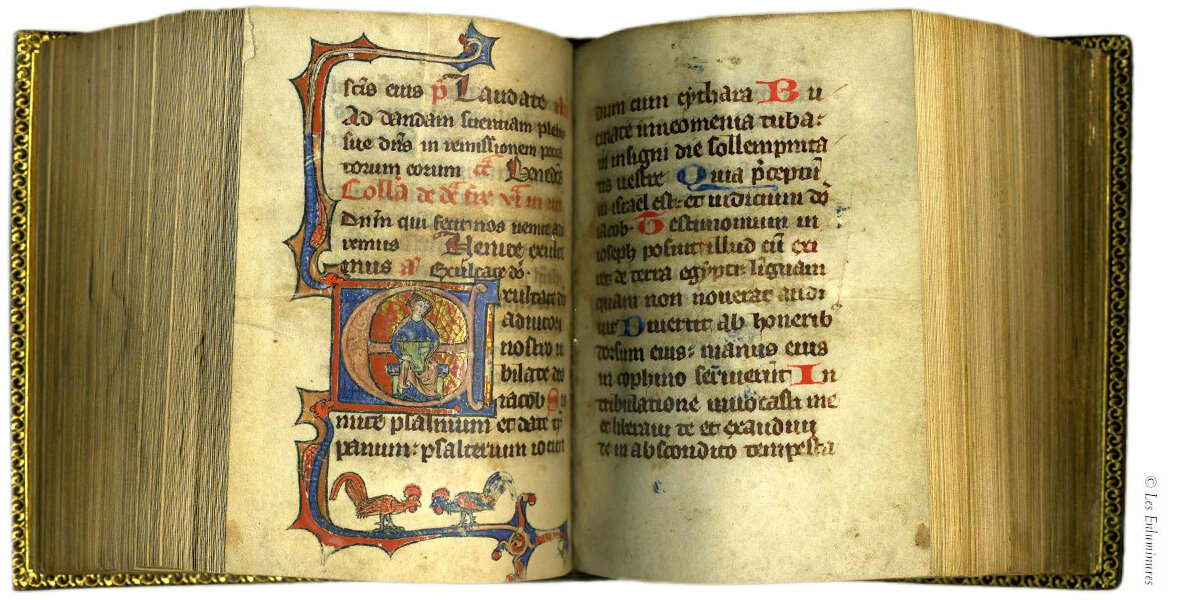 scis eius p̄ Laudate
Ad dandam scientiam plebi
sue dn̄s in remissionem pecca
torum eorum Benedc̄s
Dn̄m qui fecit nos venite ad
remus Venite exulte
mus a Exultate dō.
Exultate dō
adiutori
nostro iu
bilate dō
iacob Su
mite psalmum et date tȳ
panum: psalterium iocun
dum cum cythara Bu
cinate in neomenia tuba:
in insigni die sollempnita
tis vestre Quia p̄ceptū
in israel est: et iudicium dō
iacob. Testimonium in
ioseph posuit illud cū exi
ret de terra egypti: linguam
quam non noverat audi
vit Divertit ab honerib
dorsum eius: manus eius
in cophino servierūt In
tribulatione invocasti me
et liberavi te et exaudivi
te in abscondito tempesta
© Les Enluminures